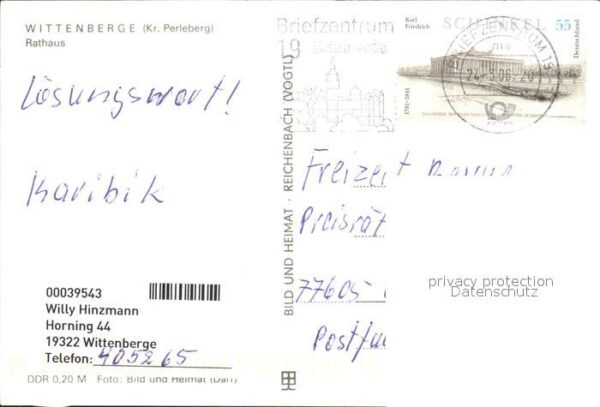 WITTENBERGE (Kr. Perleberg)
Rathaus
Lösungswort!
Karibik
00039543
Willy Hinzmann
Horning 44
19322 Wittenberge
Telefon: 405265
DDR 0,20 M Foto: Bild und Heimat (Darr)
BILD UND HEIMAT · REICHENBACH (VOGTL)
Briefzentrum
19
Karl
Friedrich
SCHINKEL
55
Deutschland
1781–1841
BRIEFZENTRUM 19
Freizeit
Preisrät
77605
Postfa
privacy protection
Datenschutz